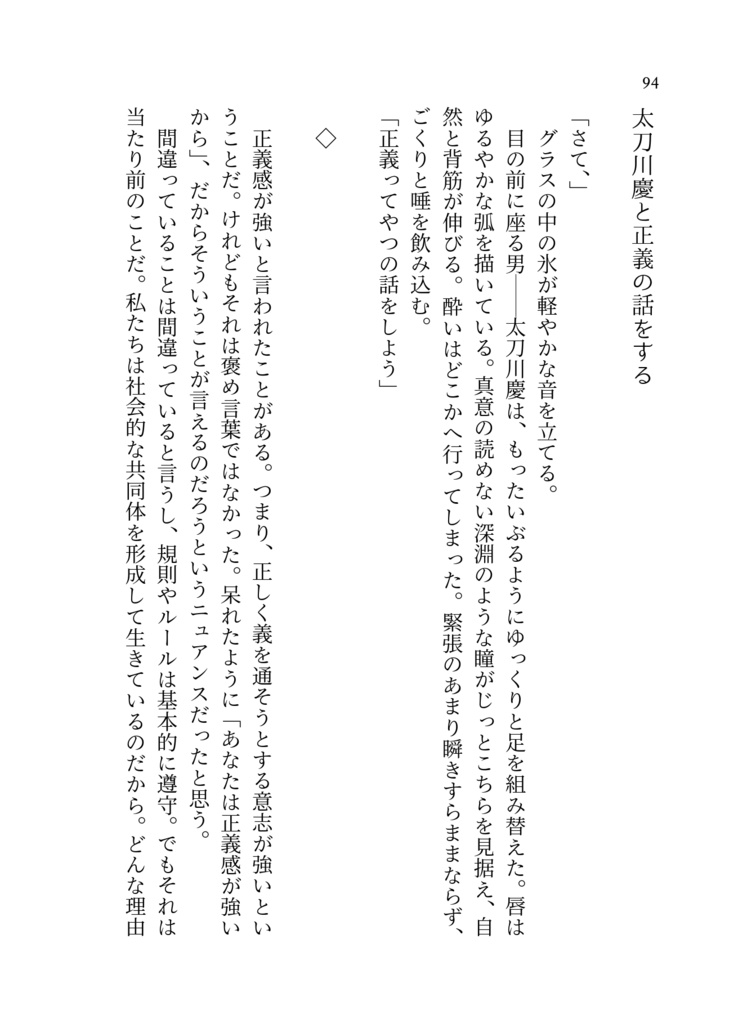 94
太刀川慶と正義の話をする
「さて、」
グラスの中の氷が軽やかな音を立てる。
目の前に座る男――太刀川慶は、もったいぶるようにゆっくりと足を組み替えた。唇は
ゆるやかな弧を描いている。真意の読めない深淵のような瞳がじっとこちらを見据え、自
然と背筋が伸びる。酔いはどこかへ行ってしまった。緊張のあまり瞬きすらままならず、
ごくりと唾を飲み込む。
「正義ってやつの話をしよう」
◇
正義感が強いと言われたことがある。つまり、正しく義を通そうとする意志が強いとい
うことだ。けれどもそれは褒め言葉ではなかった。呆れたように「あなたは正義感が強い
から」、だからそういうことが言えるのだろうというニュアンスだったと思う。
間違っていることは間違っていると言うし、規則やルールは基本的に遵守。でもそれは
当たり前のことだ。私たちは社会的な共同体を形成して生きているのだから。どんな理由